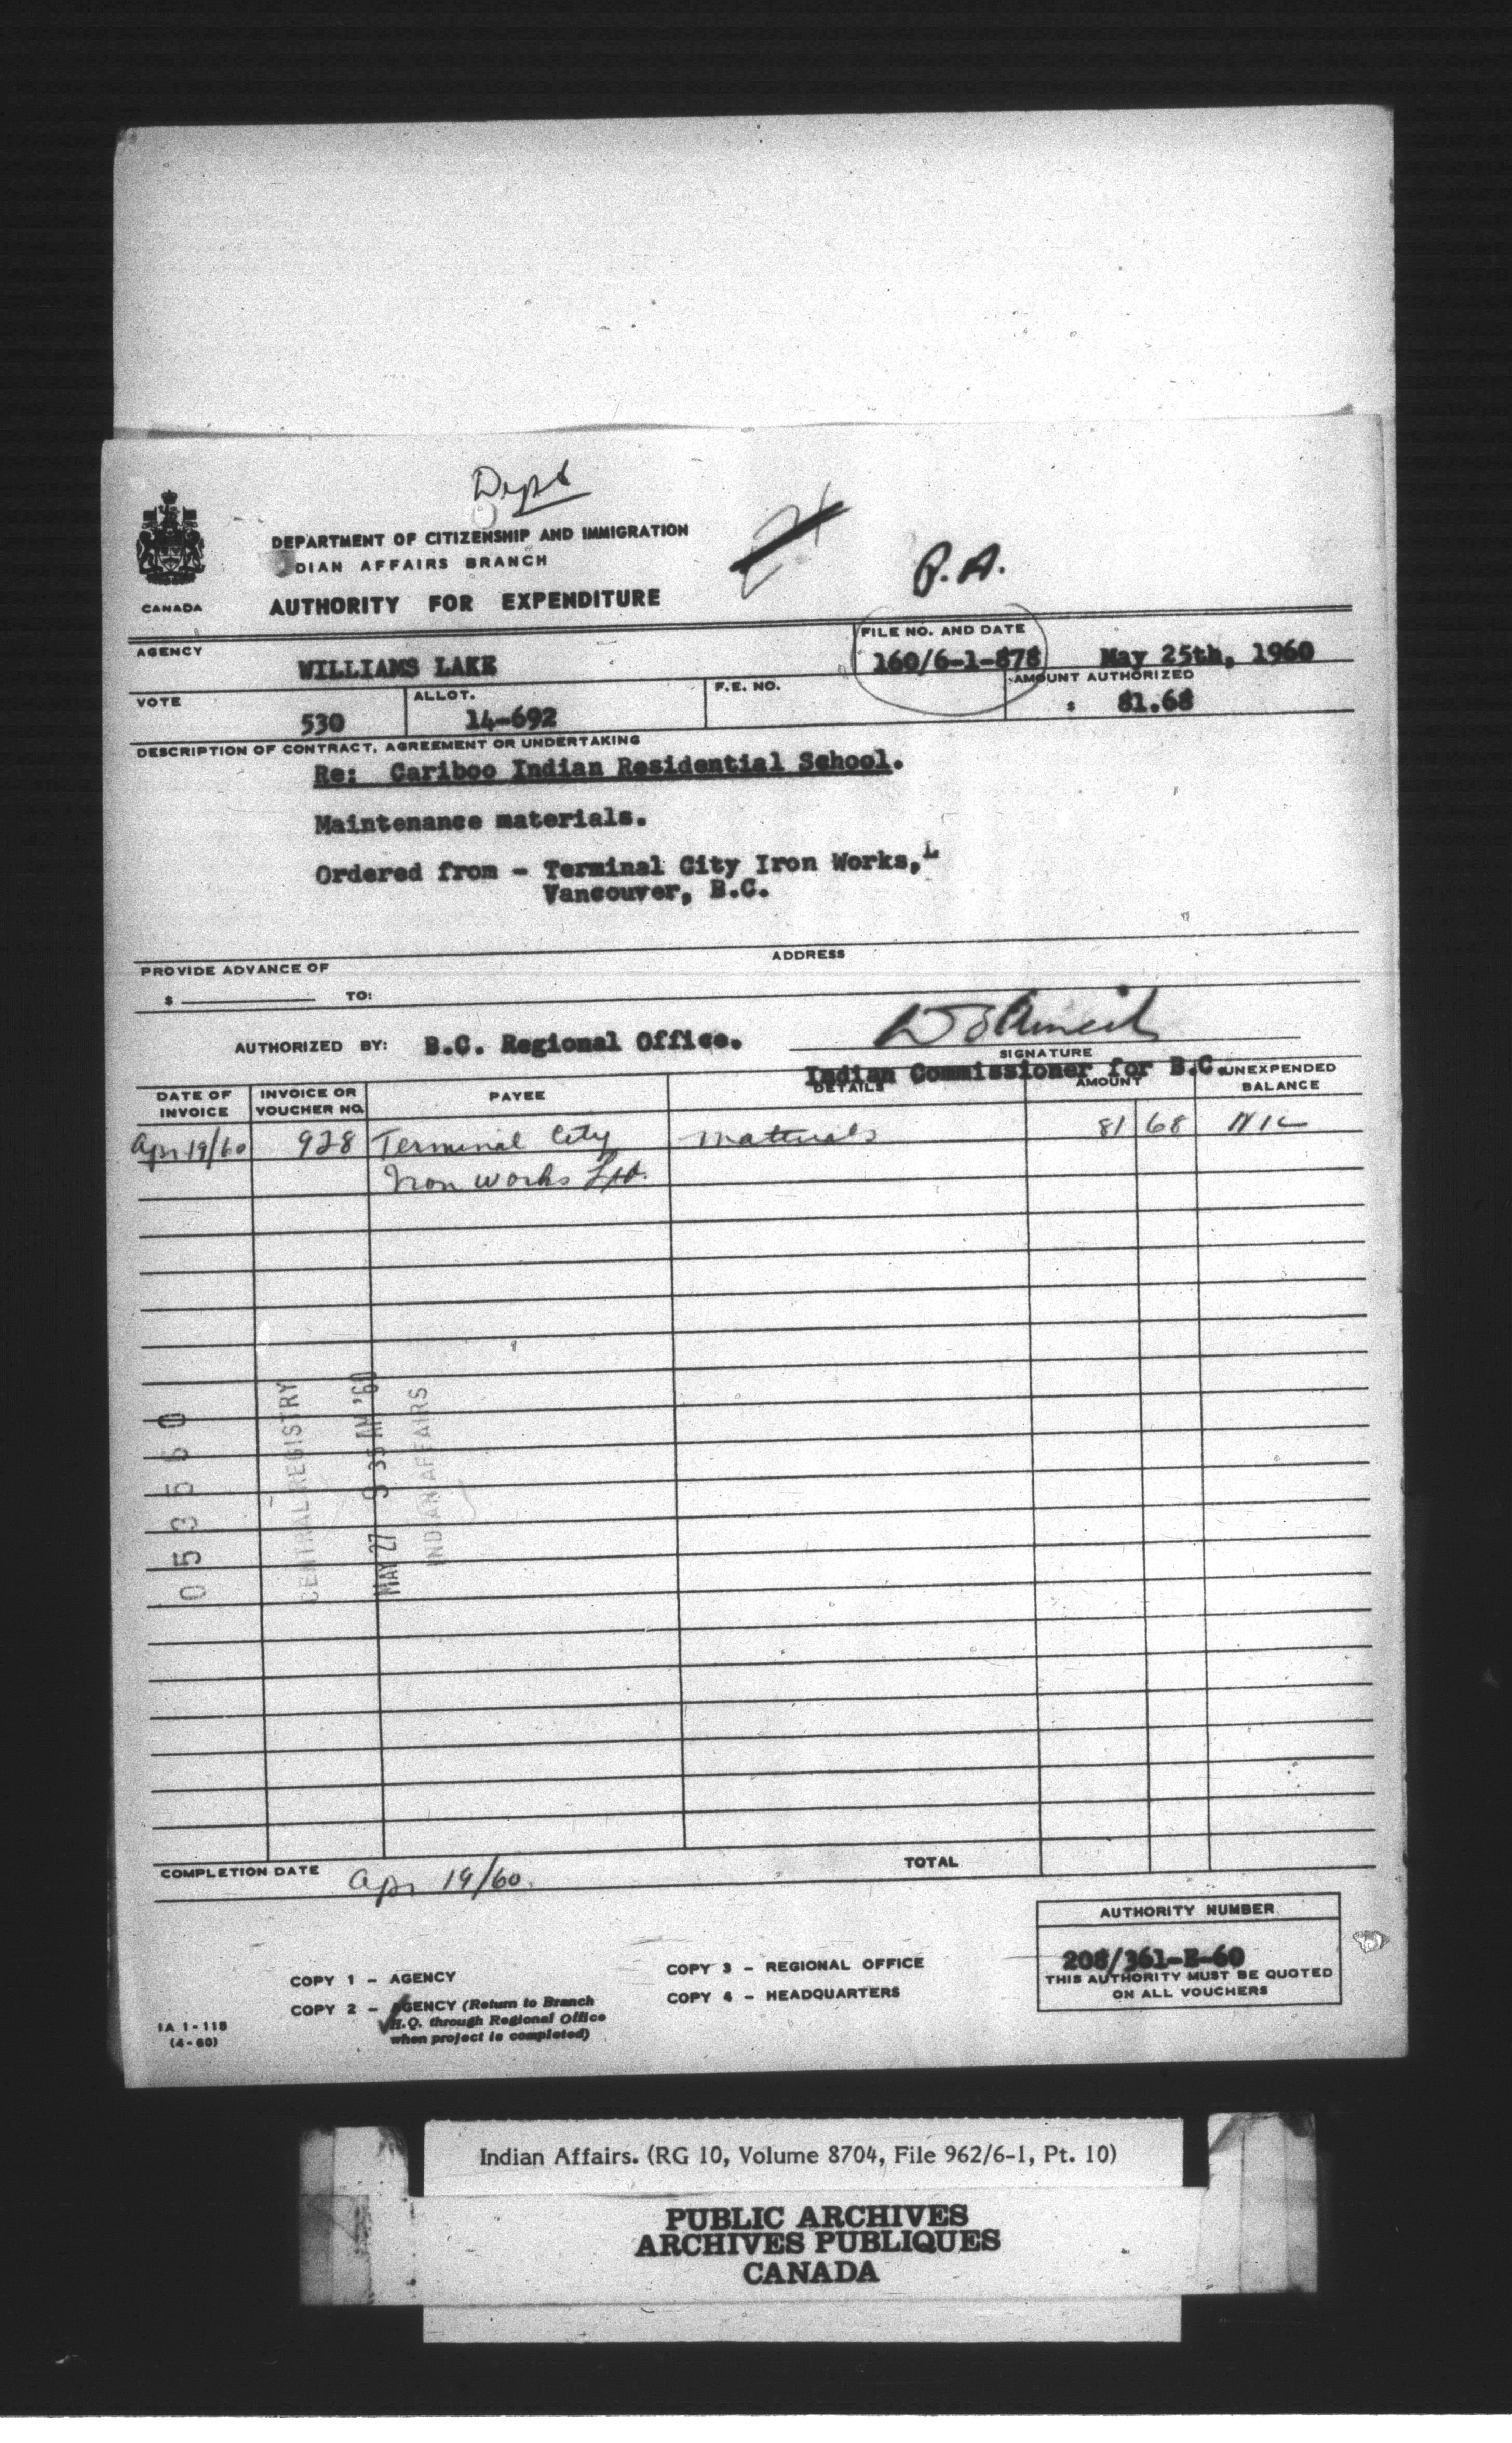 Dept
DEPARTMENT OF CITIZENSHIP AND IMMIGRATION
DIAN AFFAIRS BRANCH
CANADA
AUTHORITY FOR EXPENDITURE
P.A.
AGENCY
WILLIAMS LAKE
FILE NO. AND DATE
160/6-1-878 May 25th, 1960
VOTE
530
ALLOT.
14-692
F.E. NO.
AMOUNT AUTHORIZED
$ 81.68
DESCRIPTION OF CONTRACT, AGREEMENT OR UNDERTAKING
Re: Cariboo Indian Residential School.
Maintenance materials.
Ordered from - Terminal City Iron Works, L
Vancouver, B.C.
PROVIDE ADVANCE OF
ADDRESS
$ TO:
AUTHORIZED BY: B.C. Regional Office.
SIGNATURE
Indian Commissioner for B.C.
DATE OF INVOICE
INVOICE OR VOUCHER NO.
PAYEE
DETAILS
AMOUNT
UNEXPENDED BALANCE
Apr 19/60 928 Terminal City materials 81 68 Nil
Iron Works Ltd.
053560
CENTRAL REGISTRY
MAY 27 9 35 AM '60
INDIAN AFFAIRS
COMPLETION DATE Apr 19/60.
TOTAL
AUTHORITY NUMBER
208/361-E-60
THIS AUTHORITY MUST BE QUOTED
ON ALL VOUCHERS
COPY 1 - AGENCY
COPY 2 - AGENCY (Return to Branch
H.Q. through Regional Office
when project is completed)
COPY 3 - REGIONAL OFFICE
COPY 4 - HEADQUARTERS
IA 1-115
(4-60)
Indian Affairs. (RG 10, Volume 8704, File 962/6-1, Pt. 10)
PUBLIC ARCHIVES
ARCHIVES PUBLIQUES
CANADA